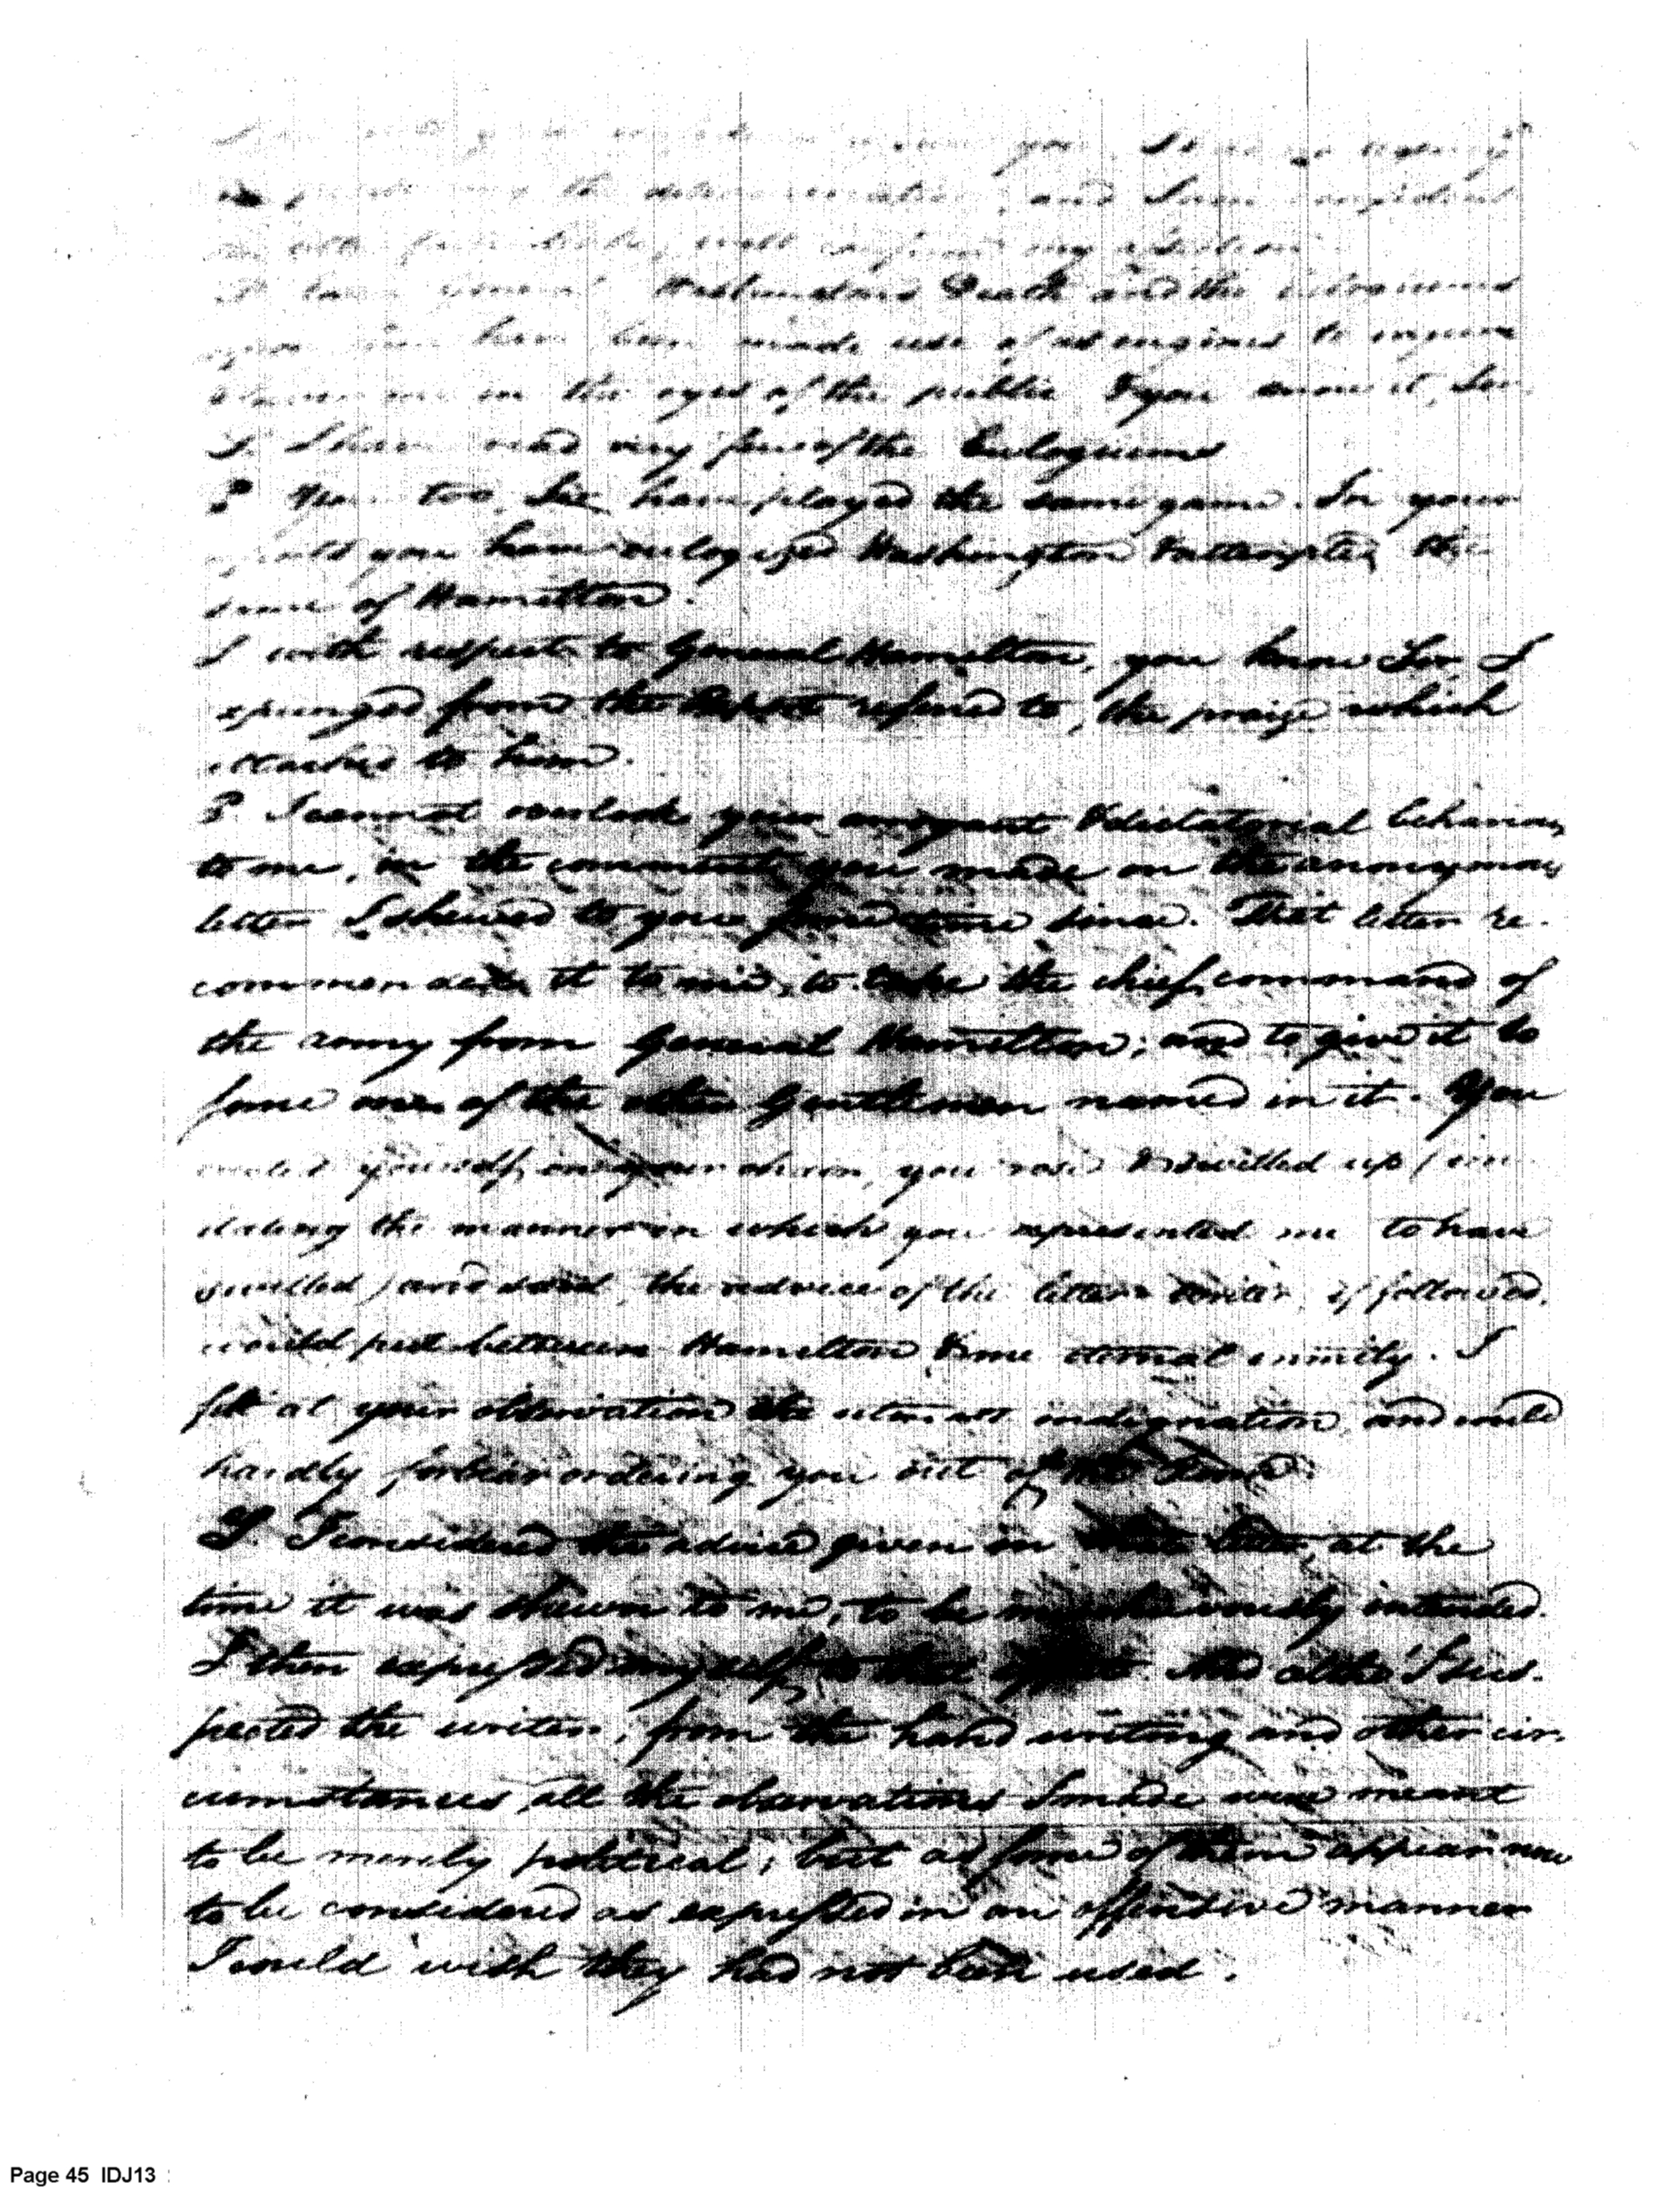 you
the determination, and I am confident
will confirm my assertion.
Washingtons Death and the
have been made use of as engines to injure
me in the eyes of the public & you know it, Sir
S. I have read very few of the Eulogiums
P You too, Sir have played the same game. In your
you have eulogized Washington & attempted the
same of Hamilton.
S with respect to General Hamilton, you know Sir, I
expunged from the Report refered to, the praise which
attached to him.
P. I cannot overlook your arrogant & dictatorial behaviour,
to me, in the comment you made on the anonymous
letter I shewed to you some time since. That letter re-
commended it to me, to take the chief command of
the army from General Hamilton; and to give it to
some one of the other Gentlemen named in it. You
yourself, in your chair, you rose & swelled up (im
itating the manner in which you represented me to have
swelled) and said, the advice of the letter writer, if followed,
would put between Hamilton & me eternal enmity. I
felt at your observation the utmost indignation, and could
hardly forbear ordering you out of the Room.
S. I considered the advice given in that letter, at the
time it was shewn to me, to be mischievously intended.
I then expressed myself to that effect. And altho' I sus-
pected the writer, from the hand writing and other cir-
cumstances, all the observations I made were meant
to be merely political; but as some of them appear now
to be considered as expressed in an offensive manner
I could wish they had not been used.
Page 45 IDJ13